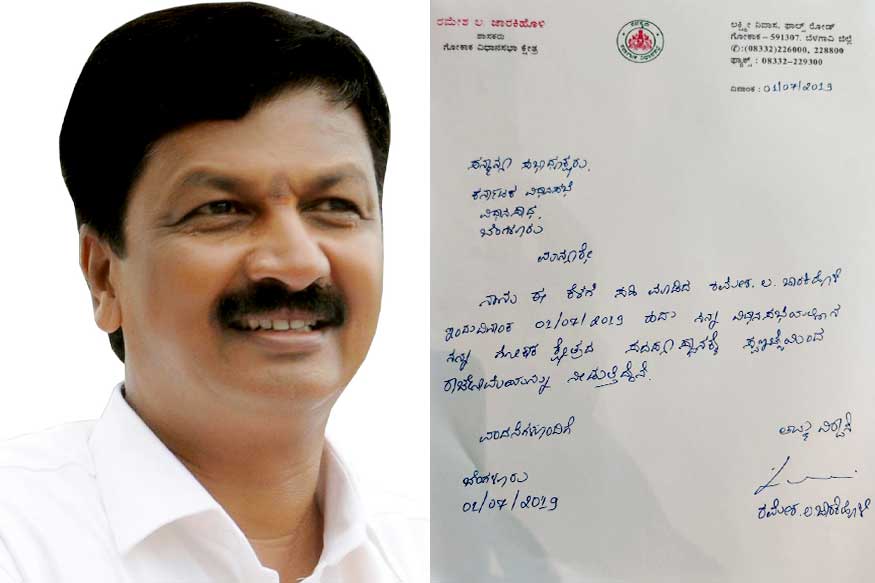 ರಮೇಶ ಲ. ಜಾರಕಿಹೊಳಿ
ಶಾಸಕರು
ಗೋಕಾಕ ವಿಧಾನಸಭಾ ಕ್ಷೇತ್ರ
ಲಕ್ಷ್ಮೀ ನಿವಾಸ, ಫಾಲ್ಸ್ ರೋಡ್
ಗೋಕಾಕ - 591307. ಬೆಳಗಾವಿ ಜಿಲ್ಲೆ
✆:(08332)226000, 228800
ಫ್ಯಾಕ್ಸ್ : 08332-229300
ದಿನಾಂಕ : 01/07/2019
ಸನ್ಮಾನ್ಯ ಸಭಾಧ್ಯಕ್ಷರು.
ಕರ್ನಾಟಕ ವಿಧಾನಸಭೆ
ವಿಧಾನಸೌಧ.
ಬೆಂಗಳೂರು
ಮಾನ್ಯರೇ
ನಾನು ಈ ಕೆಳಗೆ ಸಹಿ ಮಾಡಿದ ರಮೇಶ. ಲ. ಜಾರಕಿಹೊಳಿ
ಇಂದು ದಿನಾಂಕ 01/07/2019 ರಂದು ನನ್ನ
ನನ್ನ ಗೋಕಾಕ ಕ್ಷೇತ್ರದ ಸದಸ್ಯ ಸ್ಥಾನಕ್ಕೆ ಸ್ವಇಚ್ಛೆಯಿಂದ
ರಾಜೀನಾಮೆಯನ್ನು ನೀಡುತ್ತಿದ್ದೇನೆ.
ವಂದನೆಗಳೊಂದಿಗೆ
ತಮ್ಮ ವಿಶ್ವಾಸಿ
ಬೆಂಗಳೂರು
01/07/2019
ರಮೇಶ. ಲ ಜಾರಕಿಹೊಳಿ